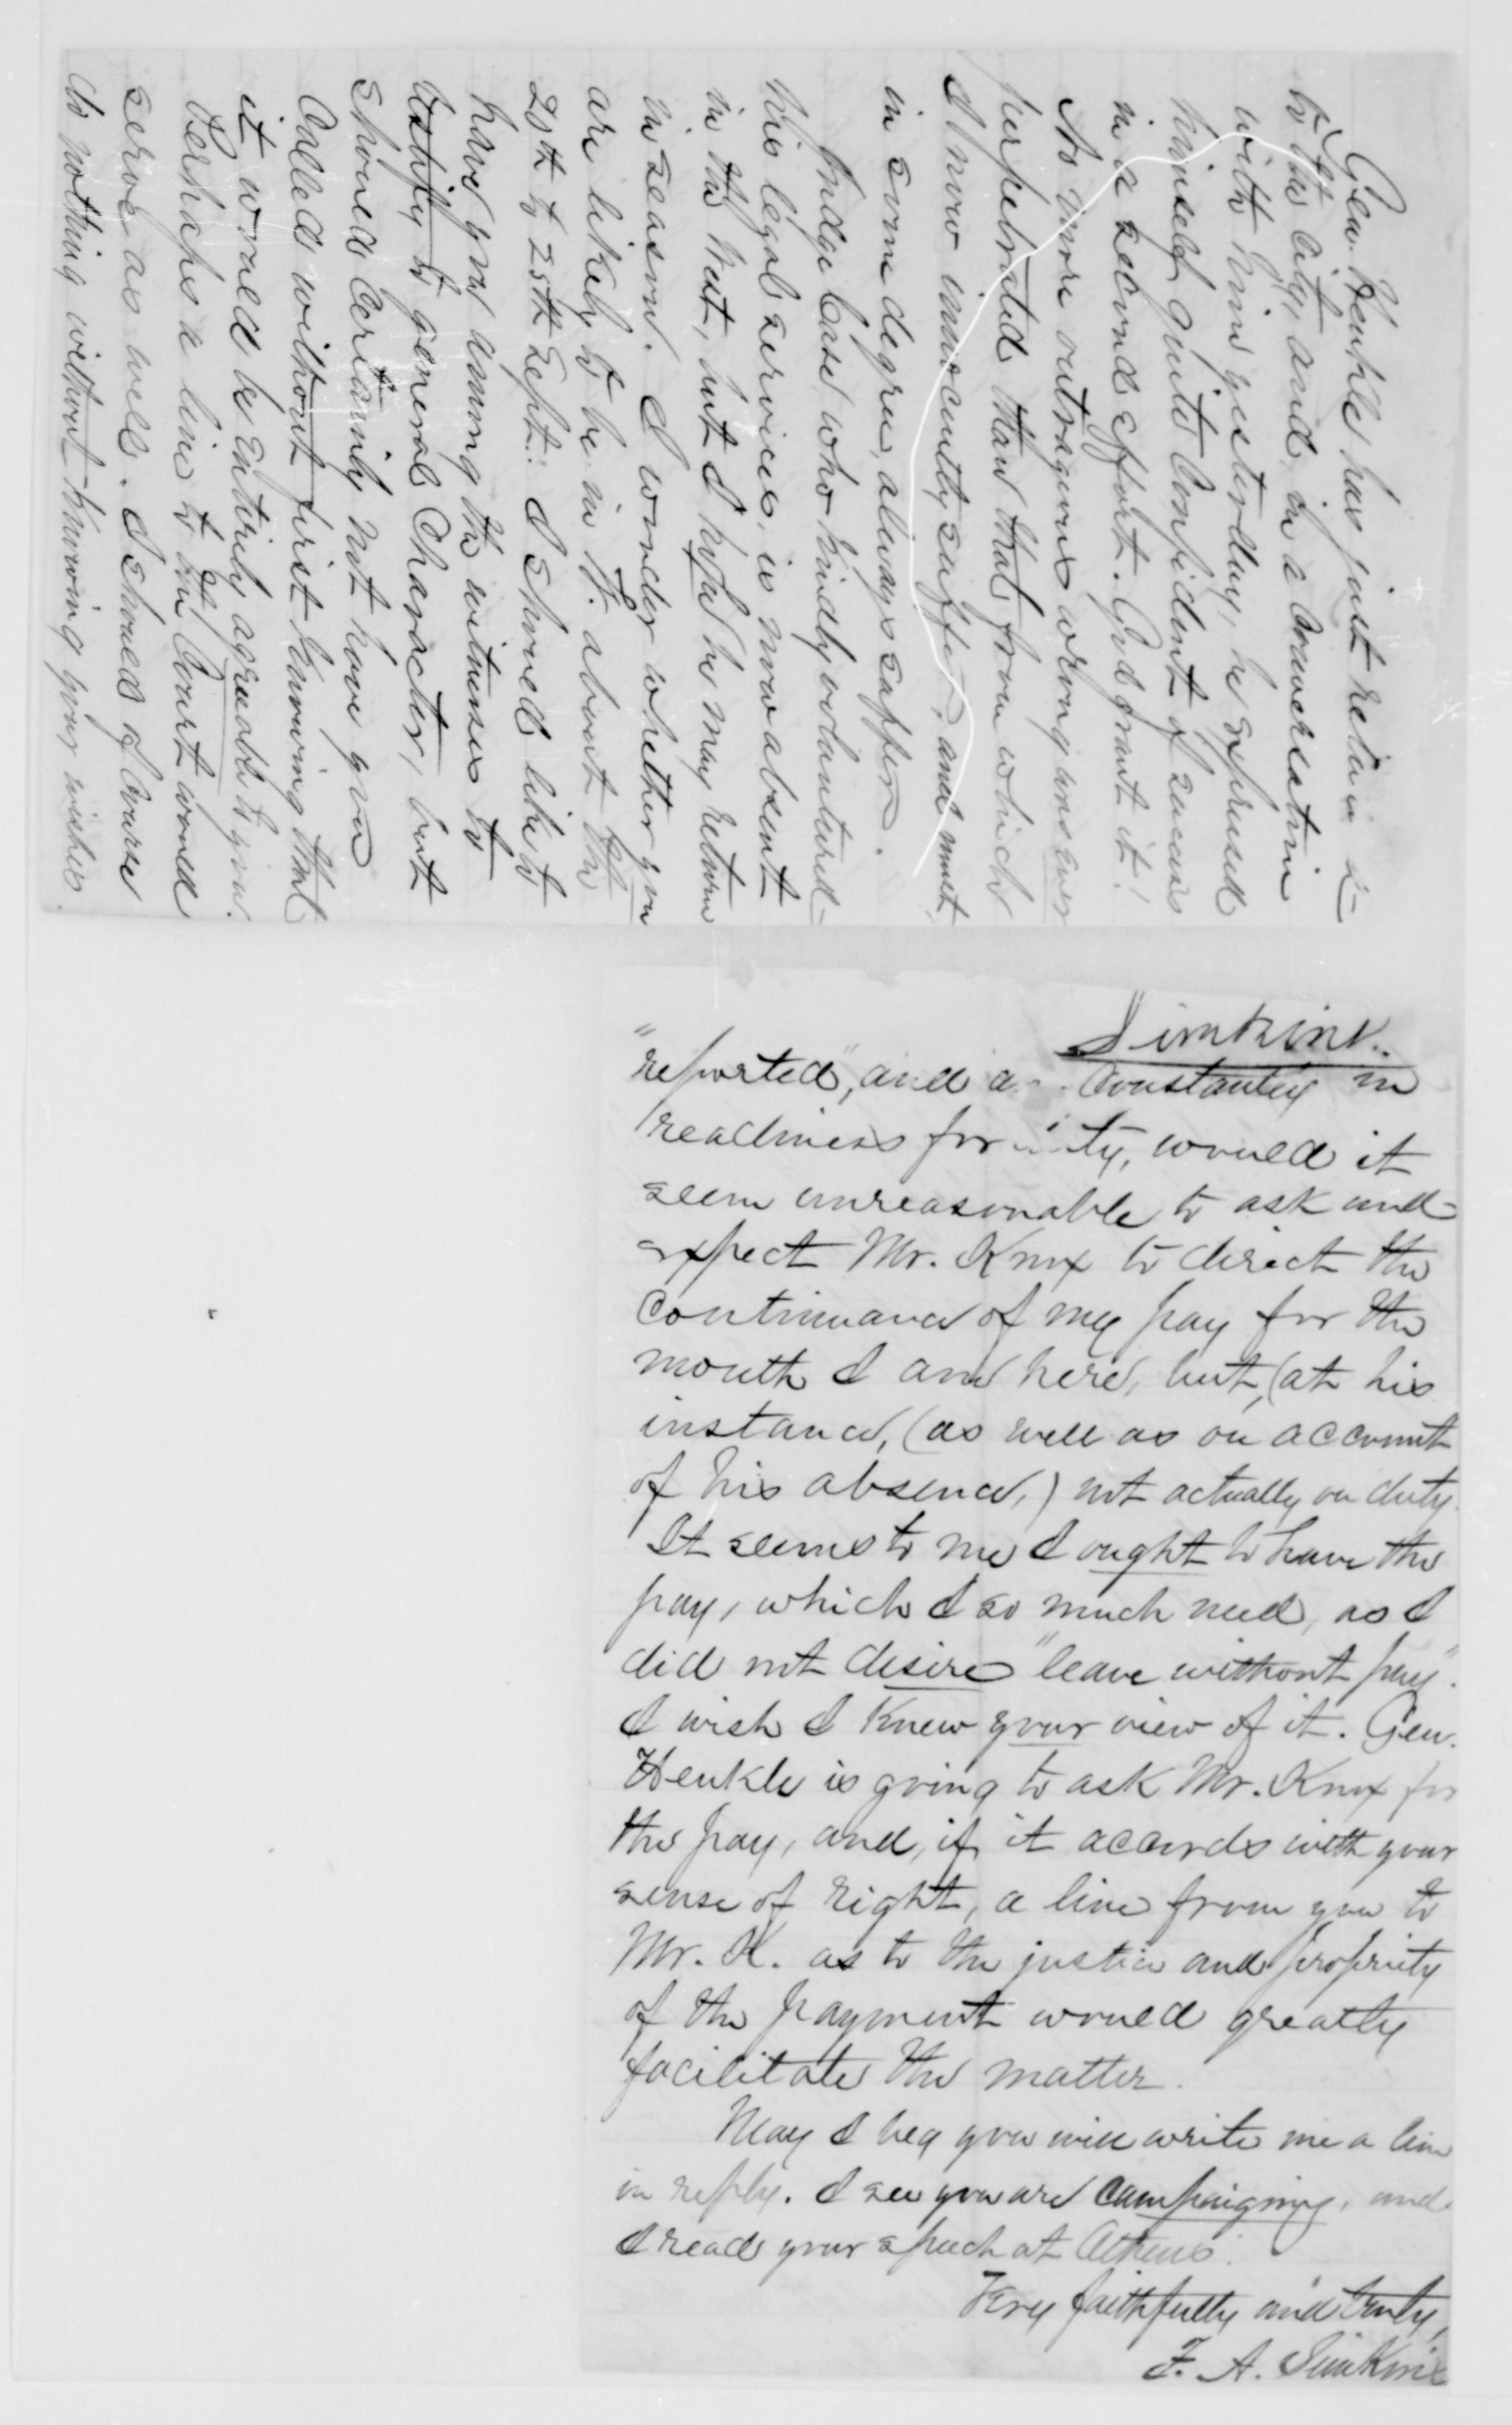 Gen. Henkle has just return
to the City, and, in a conversation
with him yesterday, he expressed
himself quite confident of success
in a second effort. God grant it!
No more outrageous wrong was ever
perpetrated than that from which
I now innocently suffer, and must,
in some degree, always suffer.
Judge Case who kindly volunteered
his legal services, is now absent
in the West, but I hope he may return
in season. I wonder whether you
are likely to be in W. about the
20th to 25th Sept.: I should like to
have you among the witnesses to
testify to general character, but
should certainly not have you
called without first knowing that
it would be entirely agreeable to you.
Perhaps a line to the Court would
serve as well. I should of course
do nothing without knowing your wishes.
Simkins.
"reported", and constantly in
readiness for would it
seem unreasonable to ask and
expect Mr. Knox to direct the
continuance of my pay for the
month I am here, but, (at his
instance, (as well as on account
of his absence,) not actually on duty.
It seems to me I ought to have the
pay, which I so much need, as I
did not desire "leave without pay".
I wish I knew your view of it. Gen.
Henkle is going to ask Mr. Knox for
the pay, and, if it accords with your
sense of right, a line from you to
Mr. K. as to the justice and propriety
of the payment would greatly
facilitate the matter.
May I beg you will write me a line
in reply. I see you are campaigning, and
I read your speech at Athens.
Very faithfully and truly,
F. A. Simkins